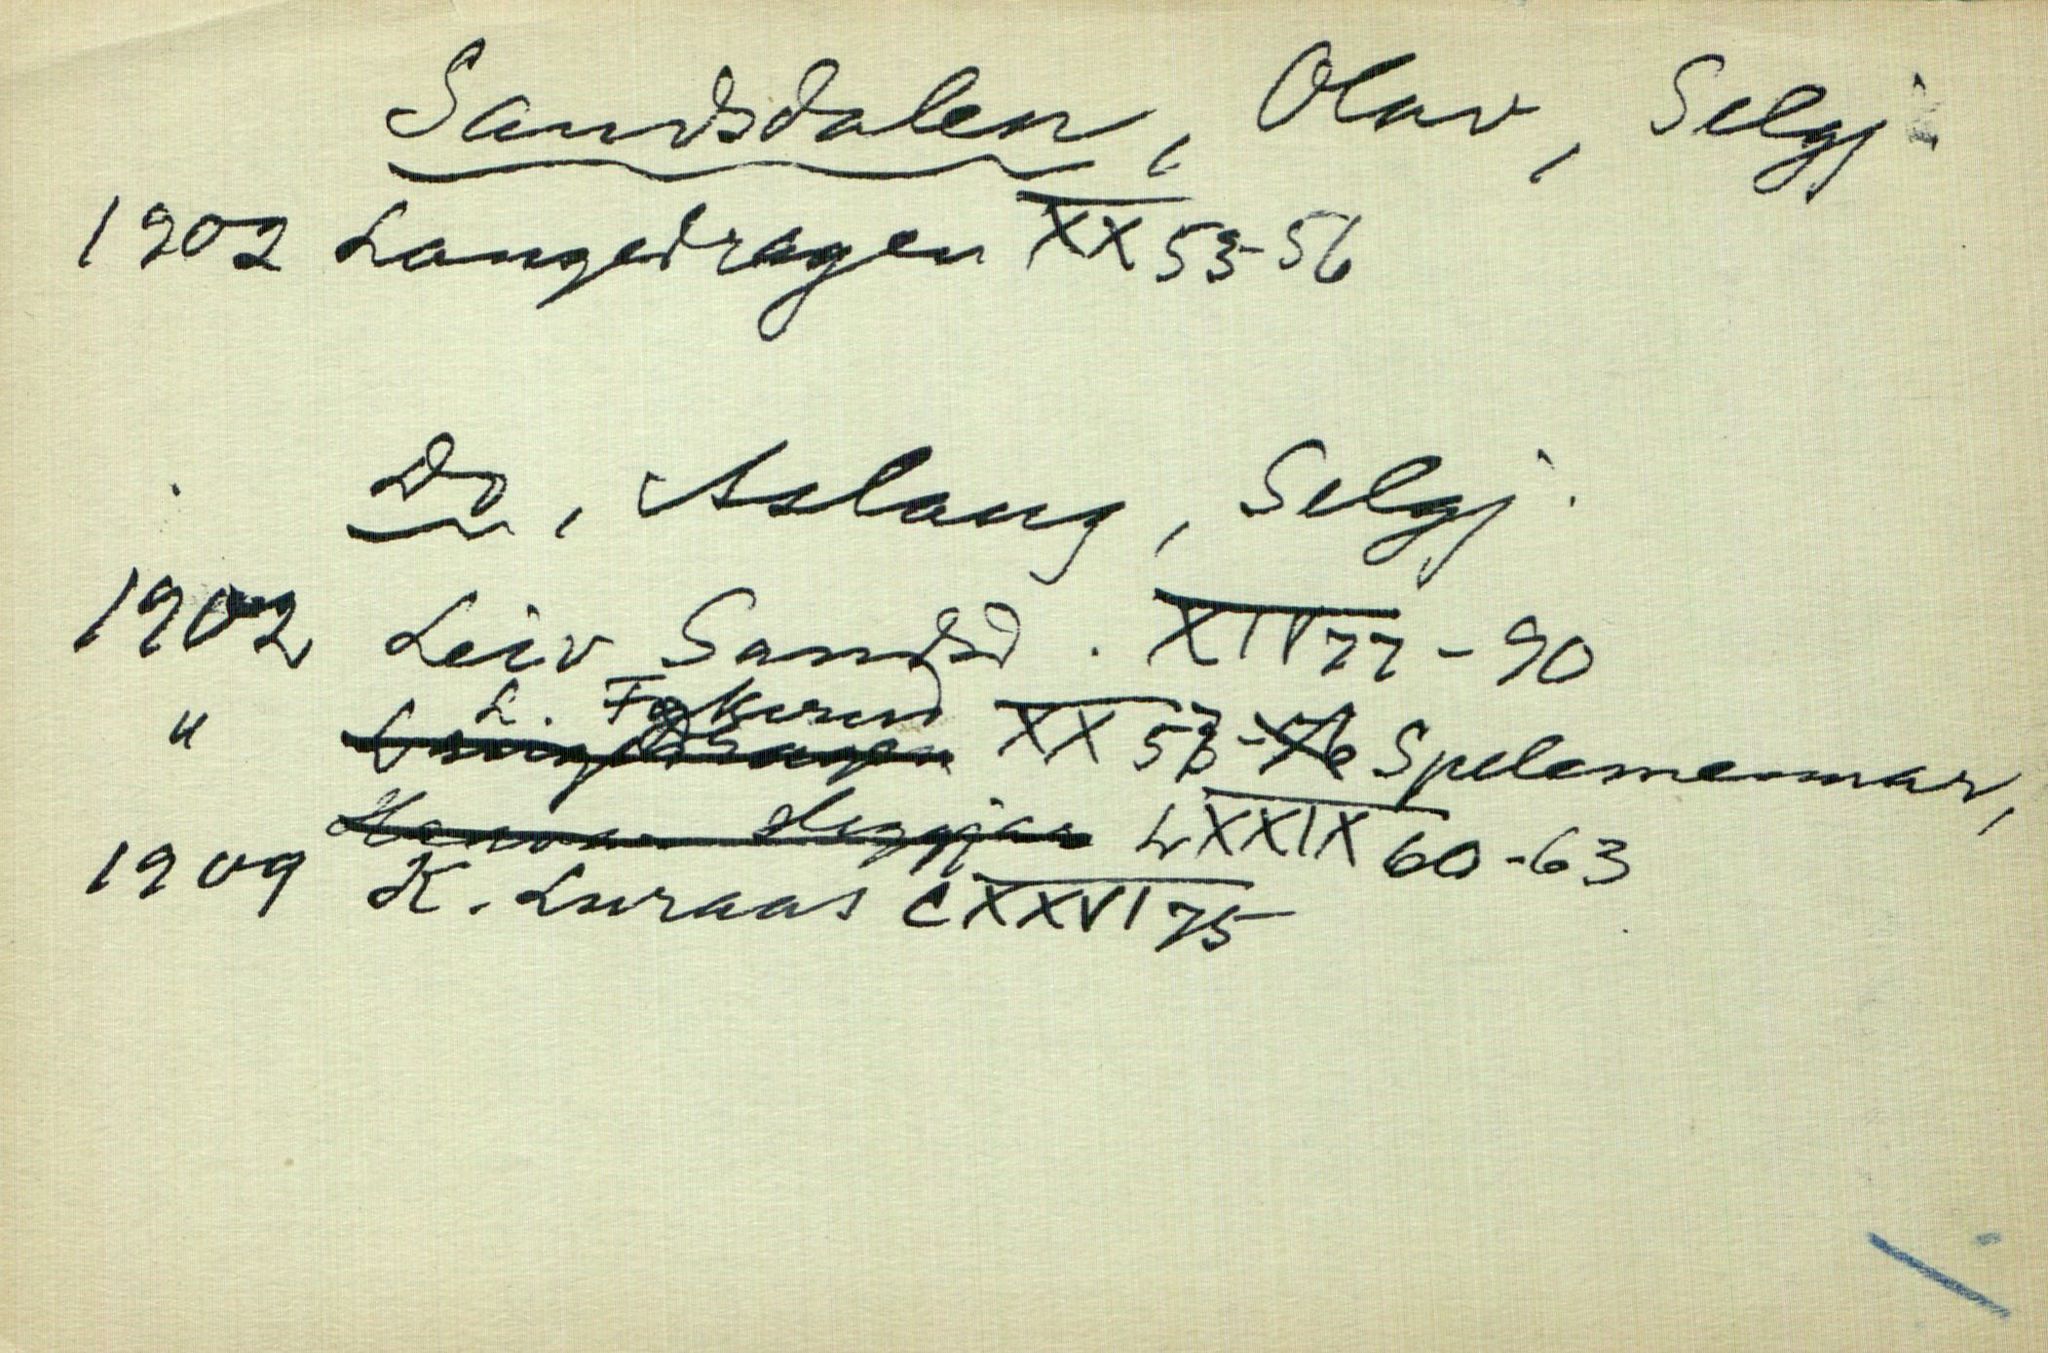 Sandsdalen, Olav, Selgj.
1902 Langedragen XX 53-56
Do, Aslaug, Selgj.
1902 Leiv Sandsd. XIV 77-90
" L. Fykerud XX 53-56 Spelemennar,
LXXIX 60-63
1909 K. Luraas CXXVI 75